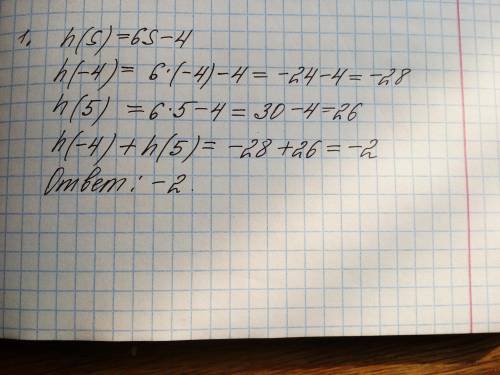 1. h(s) = 6s - 4
h(-4) = 6·(-4) - 4 = -24 - 4 = -28
h(5) = 6·5 - 4 = 30 - 4 = 26
h(-4) + h(5) = -28 + 26 = -2
Ответ: -2.